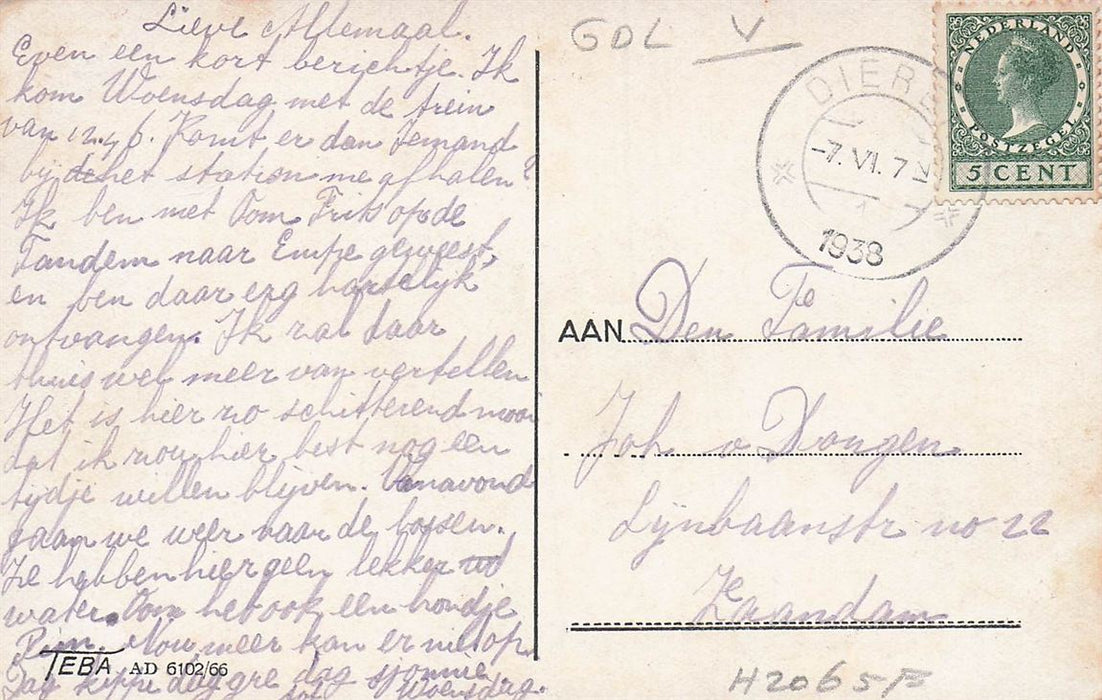 Lieve Allemaal.
Even een kort berichtje. Ik
kom Woensdag met de trein
van 12.46. Komt er dan Iemand
bij het station me afhalen?
Ik ben met Oom Frits op de
Tandem naar Empe geweest,
en ben daar erg hartelijk
ontvangen. Ik zal daar
thuis wel meer van vertellen
Het is hier zo schitterend mooi
dat ik zou hier best nog een
tijdje willen blijven. Vanavond
gaan we weer naar de bossen.
Ze hebben hier geen lekker
water. Oom heb ook een hondje
Pim. Nou meer kan er niet op.
Dag dag sjonnie
Woensdag.
TEBA AD 6102/66
GDL V
DIERE
-7.VI.7
1
1938
NEDERLAND
POSTZEGEL
5 CENT
AAN Den Familie
Joh v Dongen
Lijnbaanstr no 22
Zaandam
H2065F